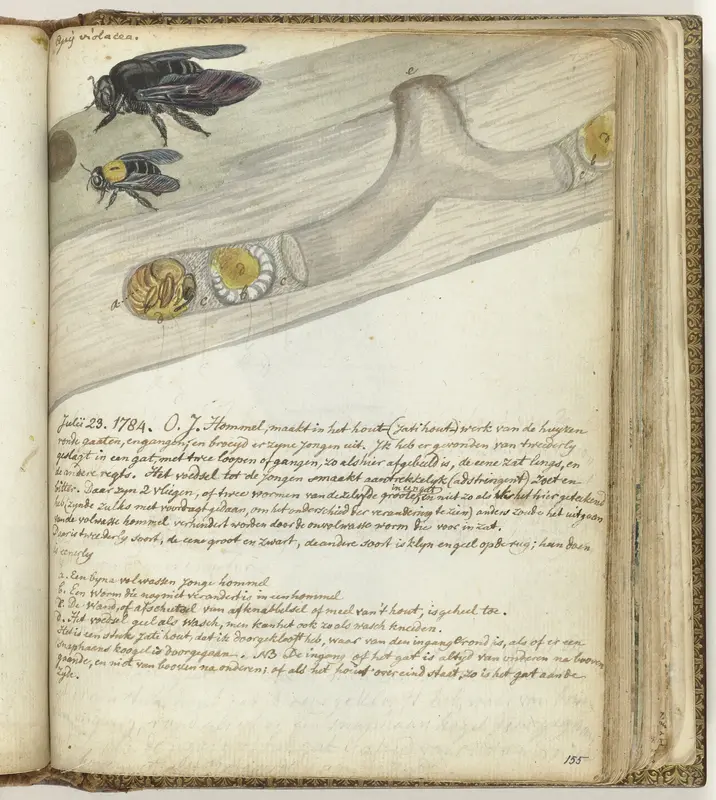 Apis violacea.
e
d
c
b
a
d
b
c
c
b
Julii 23. 1784. O. J. Hommel, maakt in het hout (Jatihout) werk van de huyzen
ronde gaaten, en gangen, en broeyd er zyne Jongen uit. Ik heb er gevonden van tweederly
geslagt in een gat, met twee loopen of gangen, zo als hier afgebeeld is, de eene zat lings, en
de andere regts. Het voedsel tot de Jongen smaakt aantrekkelyk (adstringent) zoet en
bitter. Daar zyn 2 vliegen, of twee wormen van de zelfde groote in een gat, en niet zo als het hier getekend
heb (zynde zulks met voordagt gedaan, om het onderschied der verandering te zien) anders zoude het uitgaan
van de volwasse hommel verhindert worden door de onvolwasse worm die voor in zat.
Daar is tweederly soort, de eene groot en zwart, de andere soort is klyn en geel op de rug; hun doen
is eenerly
a. Een byna volwassen Jonge hommel
b. Een worm die nog niet veranderd is in een hommel
c. De Wand, of afschutsel van afknabbelsel of meel van 't hout, is geheel toe.
d. Het voedsel geel als wasch, men kan het ook zo als wasch kneeden.
Het is een stuk Jati hout, dat ik doorgeklooft heb, waar van den ingang e rond is, als of er een
snaphaens koogel is doorgegaan. NB De ingang of het gat is altyd van onderen na boven
gaande, en niet van booven na onderen; of als het hout over eind staat, zo is het gat aan de
zyde.
155